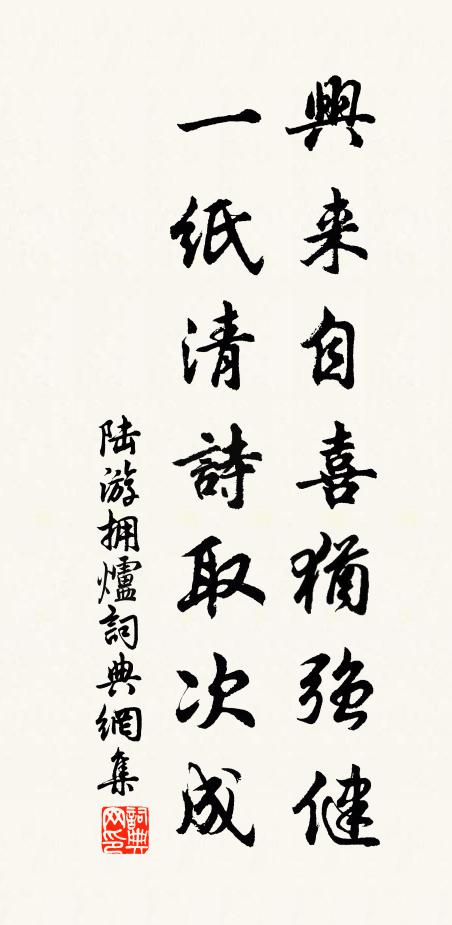 興来自喜猶強健
一紙清詩取次成
陆游拥爐詞典網集
詞典网印